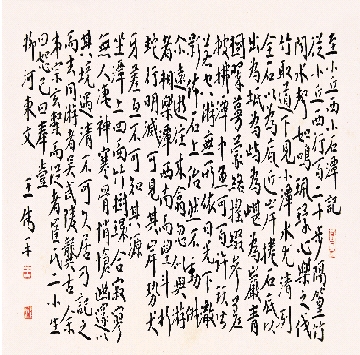 至小丘西小石潭記
從小丘西行百二十步隔篁竹
聞水聲如鳴珮環心樂之伐
竹取道下見小潭水尤清冽
全石以為底近岸卷石底以
出為坻為嶼為嵁為巖青
樹翠蔓蒙絡搖綴參差
披拂潭中魚可百許頭皆
若空游無所依日光下澈
影佈石上佁然不動俶
爾遠逝往來翕忽似與游
者相樂潭西南而望斗折
蛇行明滅可見其岸勢犬
牙差互不可知其源
坐潭上四面竹樹環合寂寥
無人凄神寒骨悄愴幽邃以
其境過清不可久居乃記之
而去同游者吳武陵龔古余
弟宗玄隸而從者崔氏二小生
曰恕己曰奉壹
柳河東文 王